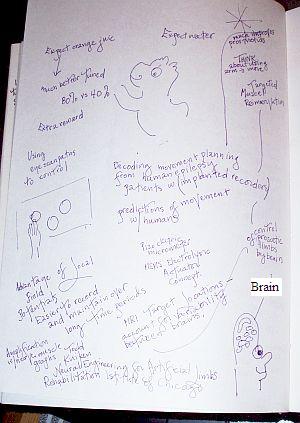 Expect orange juice
much better tuned
80% vs 40%
Extra reward
Expect water
much improves
prosthetics
THINK
about using
arm → move
Targeted
Muscle
Reinnervation
Using
eye scan paths
to control
Decoding movement planning
from human epilepsy
patients w/ implanted recorders
predictions of movement
w/ humans
control
of prosthetic
limbs
by brain
Piezoelectric
microdrive
MEMS Electrolytic
Actuator
Concept
Advantage of local
field
potentials
Easier to record
and maintain over
long time periods
MRI Target locations
account for variability
between brains.
Brain
Amplification
w/ nerve muscle
grafts Kuiken
Neural Engineering for Artificial limbs
Rehabilitation Institute of Chicago